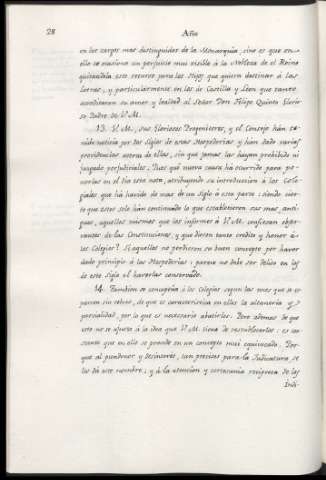 28 Año
en los cargos mas distinguidos de la Monarquia; sino es que en
ello se ocasiona un perjuicio mui visible á la Nobleza de el Reino
quitandola este recurso para los Hijos que quieren destinar á las
Letras, y particularmente en las de Castilla y Leon que tanto
acreditaron su amor y lealtad al Señor Don Felipe Quinto Glorio
so Padre de V. M.
13. V. M., sus Gloriosos Progenitores, y el Consejo han te-
nido noticia por dos siglos de esas Hospederias y han dado varias
providencias acerca de ellas, sin que jamas las hayan prohibido ni
juzgado perjudiciales. Pues què nueva causa ha ocurrido para po-
nerlas en el dia esta nota, atribuyendo su introduccion à los Cole-
giales que há havido de mas de un siglo à esta parte: siendo cier-
to que estos solo hán continuado lo que establecieron sus mas anti-
guos, aquellos mismos que los informes à V. M. confiesan obser-
vantes de las Constituciones, y que dieron tanto credito y honor á
los Colegios? Si aquellos no perdieron su buen concepto por haver
dado principio á las Hospederias: parece no debe ser delito en los
de este siglo el haverlas conservado.
14. Tambien se conceptúa à los Colegios segun las voces que se es
parcen sin rebozo, de que es caracteristica en ellos la altaneria y
parcialidad, por lo que es necesario abatirlos. Pero ademas de que
esto no se ajusta à la idea que V. M. tiene de restablecerlos: es con
stante que en ello se procede en un concepto mui equivocado. Por-
que al pundonor y desinterés, tan precisos para la Judicatura, se
les dà este nombre; y à la atencion y cortesania reciproca de los
Indi-